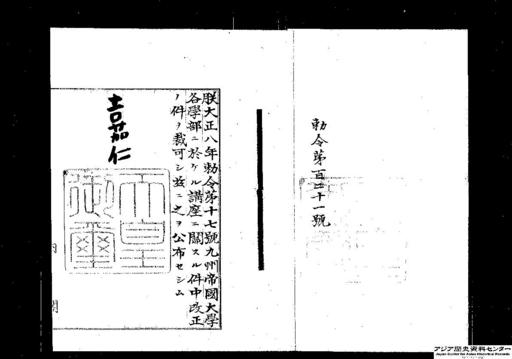 勅令第百四十一號
朕大正八年勅令第十七號九州帝國大學
各學部ニ於ケル講座ニ關スル件中改正
ノ件ヲ裁可シ茲ニ之ヲ公布セシム
嘉仁
天皇
御璽
内閣
アジア歴史資料センター
Japan Center for Asian Historical Records